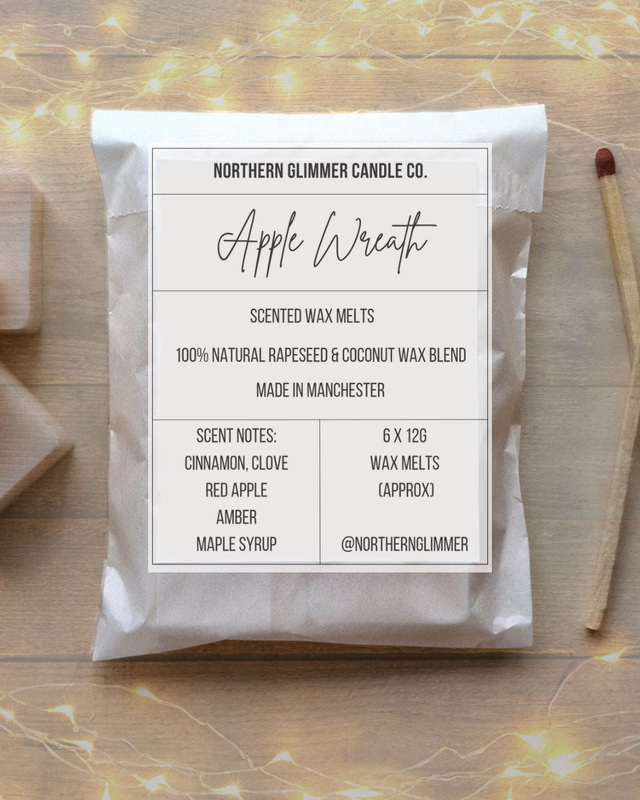 NORTHERN GLIMMER CANDLE CO.
Apple Wreath
SCENTED WAX MELTS
100% NATURAL RAPESEED & COCONUT WAX BLEND
MADE IN MANCHESTER
SCENT NOTES:
CINNAMON, CLOVE
RED APPLE
AMBER
MAPLE SYRUP
6 X 12G
WAX MELTS
(APPROX)
@NORTHERNGLIMMER